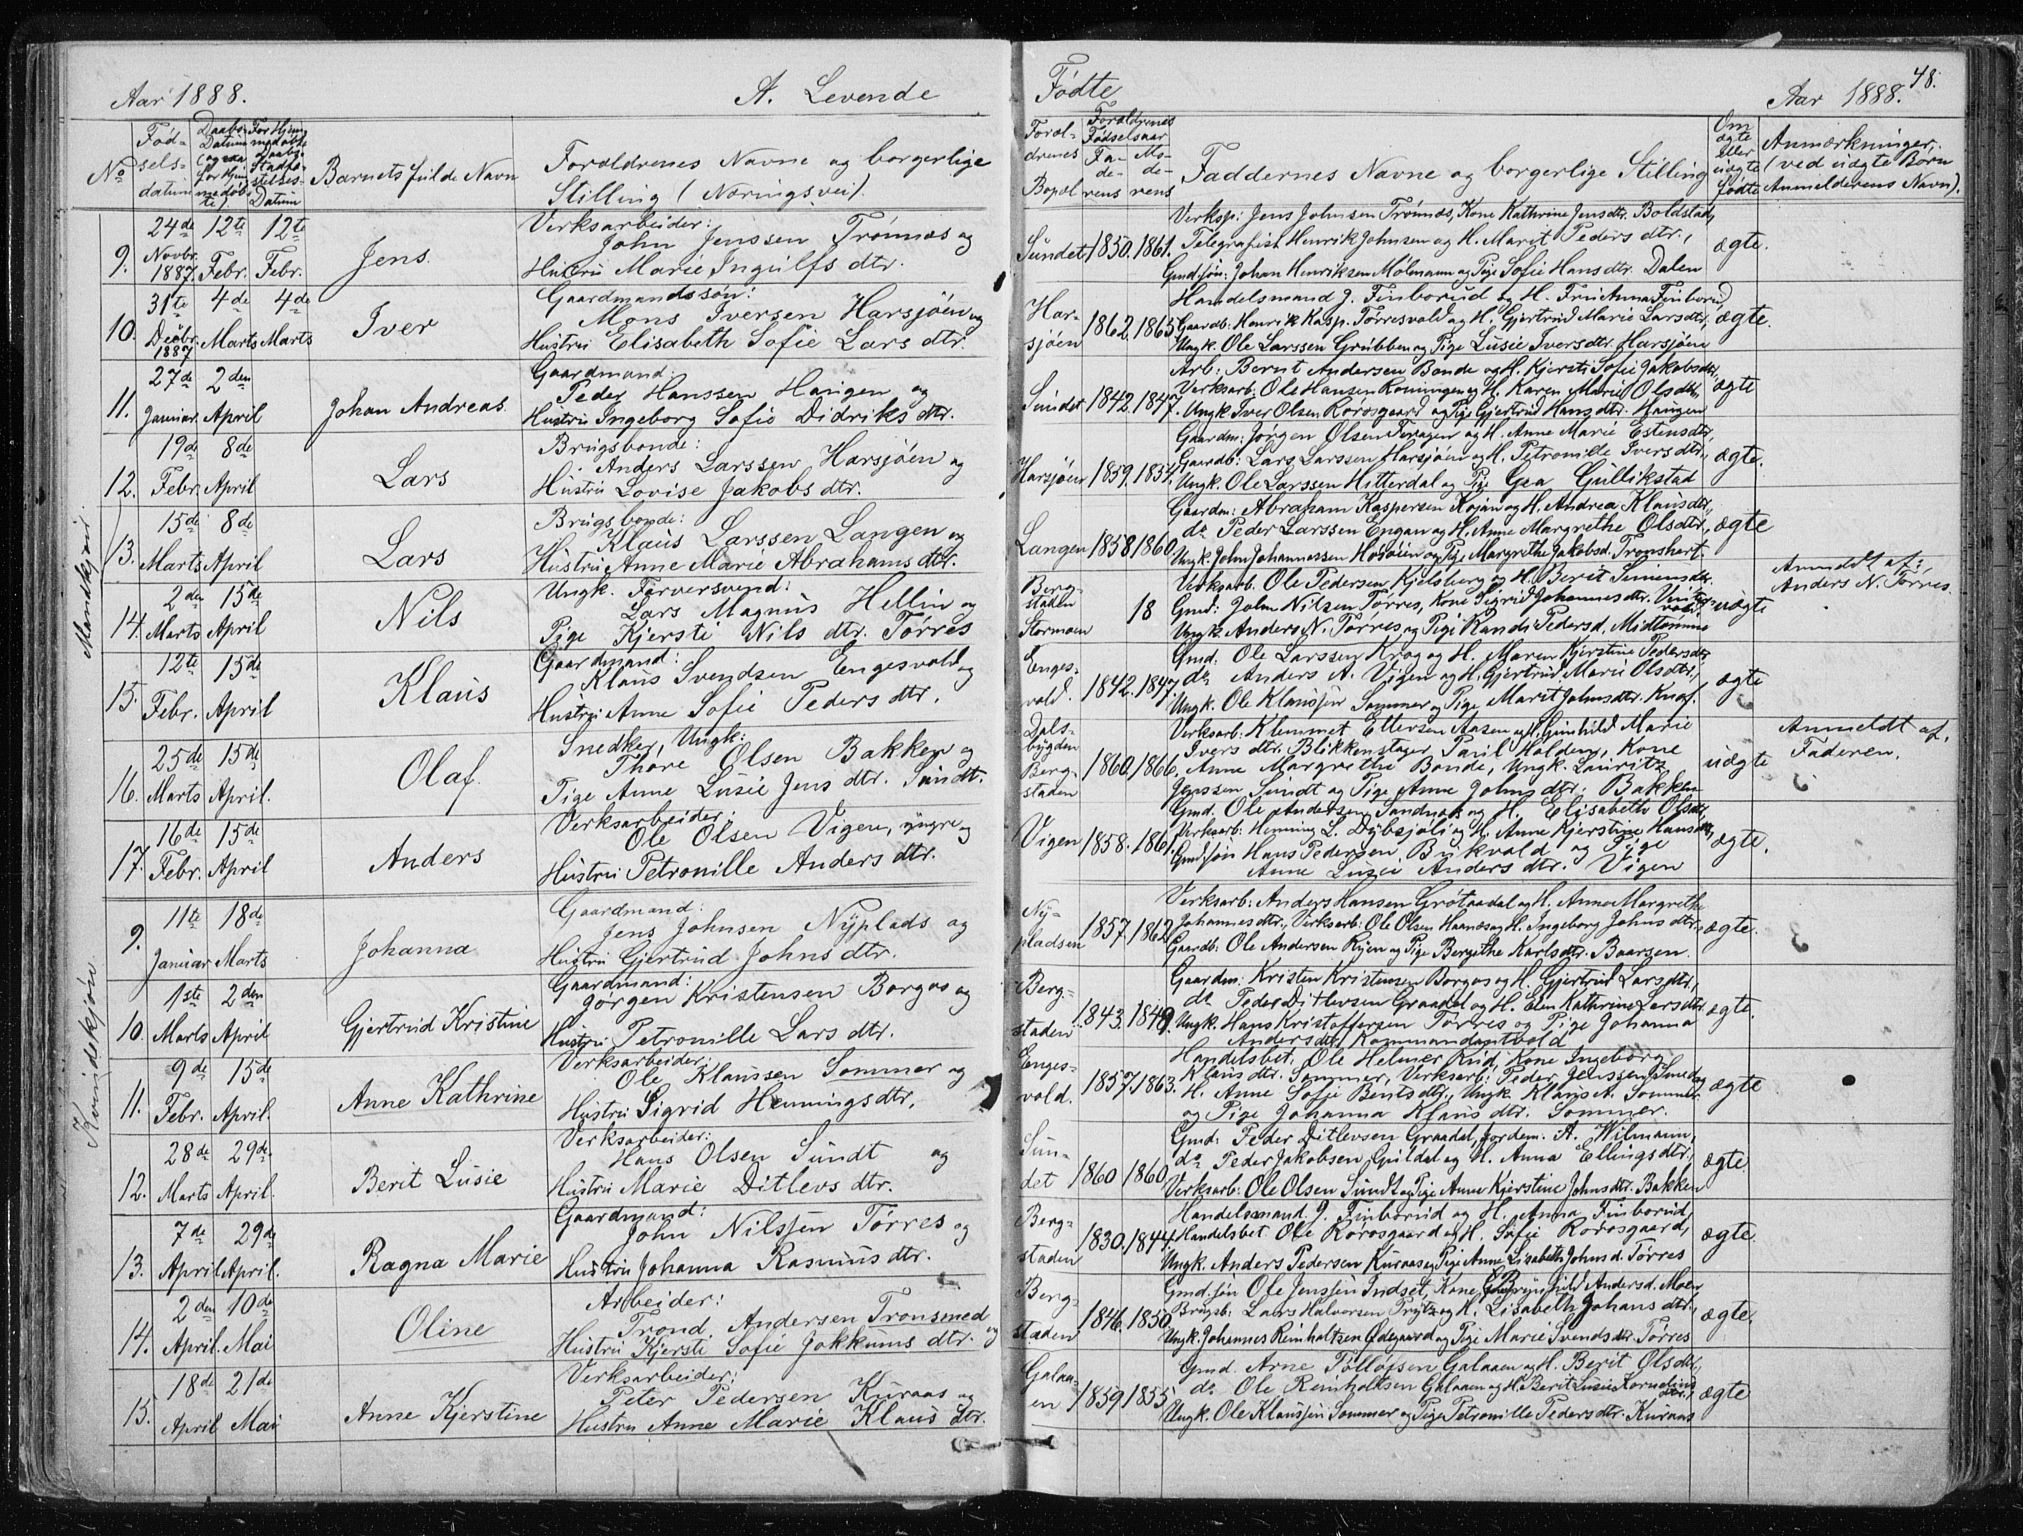 Aar 1888. A. Levende Fødte Aar 1888. 48.
No
Fødselsdatum
Barnets fulde Navn
Forældrenes Navne og borgerlige
Stilling (Næringsvei).
Forældrenes Bopæl
Forældrenes Fødselsaar
Faderens Moderens
Faddernes Navne og borgerlige Stilling
Om ægte eller uægte Født
Anmærkninger,
(ved uægte Børn
Anmelderens Navn).
Mandkjøn.
9. 24de Novbr. 1887. 12te Febr. 12te Febr. Jens
Verksarbeider:
John Jenssen Trønnæs og
Hustru Marie Ingulfs dtr.
Sundet 1850. 1861.
Verksp: Jens Johnsen Trønnæs, Kone Kathrine Jensdtr. Boldstad,
Telegrafist Henrik Johnsen og H. Marit Peders dtr.,
Gmdsøn: Johan Henriksen Mølmann og Pige Sofie Hansdtr. Dalen
ægte.
10. 31te Decbr. 1887 4de Marts 4de Marts Iver
Gaardmandssøn:
Mons Iversen Harsjøen og
Hustru Elisabeth Sofie Lars dtr.
Harsjøen 1862. 1865
Handelsmand J. Finborud og H. Fru Anna Finborud,
Gaardb: Henrik Kasp. Torresvold og H. Gjertrud Marie Larsdtr,
Ungk. Ole Larssen Grubben og Pige Lusie Iversdtr. Harsjøen
ægte.
11. 27de Januar 2den April Johan Andreas.
Gaardmand:
Peder Hanssen Haugen og
Hustru Ingeborg Sofie Didriks dtr.
Sundet 1842. 1847.
Arb: Bernt Andersen Bonde og H. Kjersti Sofie Jakobsdtr,
Verksarb: Ole Hansen Ronningen og H. Karen Marie Olsdtr,
Ungk. Iver Olsen Rørosgaard og Pige Gjertrud Hans dtr. Haugen
ægte
12. 19de Febr. 8de April Lars
Brugsbonde:
Anders Larssen Harsjøen og
Hustru Lovise Jakobs dtr.
Harsjøen 1859. 1854.
Gaardm: Jørgen Olsen Feragen og H. Anne Marie Estensdtr,
Gaardb: Lars Larssen Harsjøen og H. Petronille Iversdtr.,
Ungk. Ole Larssen Hitterdal og Pige Gea Gullikstad
ægte.
13. 15de Marts 8de April Lars
Brugsbonde:
Klaus Larssen Langen og
Hustru Anne Marie Abrahams dtr.
Langen 1858. 1860.
Gaardm: Abraham Kaspersen Kojan og H. Andrea Klausdtr,
do Peder Larssen Engan og H. Anne Margrethe Olsdtr.,
Ungk. John Johannessen Hosøien og Pige Margrethe Jakobsd. Tronshart.
ægte
14. 2den Marts 15de April Nils
Ungk. Farversvend:
Lars Magnus Hellin og
Pige Kjersti Nils dtr. Tørres
Bergstaden Stormoen 18
Verksarb. Ole Pedersen Kjelsberg og H. Berit Simensdtr.
Gmd: John Nilsen Tørres, Kone Sigrid Johannes dtr.
Ungk. Anders N. Tørres og Pige Randi Pedersd. Midtømme
uægte
Anmeldt af:
Anders N. Tørres.
15. 12te Febr. 15de April Klaus
Gaardmand:
Klaus Svendsen Engesvold og
Hustru Anne Sofie Peders dtr.
Engesvold. 1842. 1847.
Gmd: Ole Larssen Krog og H. Maren Kjerstine Pedersdtr,
do Anders A. Vigen og H. Gjertrud Marie Olsdtr,
Ungk. Ole Klaussen Sommer og Pige Marit Johnsdtr. Knof.
ægte
16. 25de Marts 15de April. Olaf.
Snedker, Ungk:
Thore Olsen Bakken og
Pige Anne Lusie Jens dtr. Sundt.
Dalsbygden Bergstaden 1860. 1866.
Verksarb: Klemmet Ellersen Aasen og H. Gunhild Marie
Ivers dtr. Blikkenslager Paul Holden, Kone
Anne Margrethe Bonde, Ungk. Lauritz
Jenssen Sundt og Pige Anne Johnsdtr. Bakken
uægte
Anmeldt af,
Faderen.
17. 16de Febr. 15de April Anders
Verksarbeider:
Ole Olsen Vigen, yngre og
Hustru Petronille Anders dtr.
Vigen 1858. 1861.
Gmd. Ole Andersen Sandnes og H. Elisabeth Olsdtr,
Verksarb: Henning L. Dybsjøli og H. Anne Kjerstine Hansdtr,
Gmdsøn Hans Pedersen Bukvold og Pige
Anne Lusie Anders dtr. Vigen
ægte.
Kvindekjøn.
9. 11te Januar 18de Marts Johanna
Gaardmand:
Jens Johnsen Nyplads og
Hustru Gjertrud Johns dtr.
Nypladsen 1857. 1862.
Verksarb: Anders Hansen Grøtaadal og H. Anne Margrethe
Johannesdtr., Verksarb: Ole Olsen Haanæs og H. Ingeborg Johns dtr,
Gaardb. Ole Andersen Ryen og Pige Bergithe Karlsdtr. Baarsen.
ægte.
10. 1ste Marts 2den April Gjertrud Kristine
Gaardmand:
Jørgen Kristensen Borgos og
Hustru Petronille Lars dtr.
Bergstaden 1843. 1849.
Gaardm: Kristen Kristensen Borgos og H. Gjertrud Larsdtr,
do Peder Ditlevsen Graadal og H. Elen Kathrine Larsdtr.
Ungk. Hans Kristoffersen Tørres og Pige Johanna
Andersdtr. Kommandantvold
ægte.
11. 9de Febr. 15de April. Anne Kathrine
Verksarbeider:
Ole Klaussen Sommer og
Hustru Sigrid Hennings dtr.
Engesvold. 1857. 1863.
Handelsbet. Ole Helmer Rud, Kone Ingeborg
Klausdtr. Sommer, Verksarb: Peder Jenssen Sund og
H. Anne Sofie Bentsdtr., Ungk. Klaus A. Sommer
og Pige Johanna Klausdtr. Sommer.
ægte
12. 28de Marts 29de April. Berit Lusie
Verksarbeider:
Hans Olsen Sundt og
Hustru Marie Ditlevs dtr.
Sundet 1860 1860.
Gmd: Peder Ditlevsen Graadal, Jordem. A. Wilmann,
do Peder Jakobsen Guldal og H. Anna Ellingsdtr,
Verksarb: Ole Olsen Sundt og Pige Anne Kjerstine Johnsdtr. Bakken
ægte
13. 7de April 29de April. Ragna Marie
Gaardmand:
John Nilssen Tørres og
Hustru Johanna Rasmus dtr.
Bergstaden 1830. 1844.
Handelsmand J. Finborud og H. Anna Finborud,
Handelsbet Ole Rørosgaard og H. Sofie Rørosgaard,
Ungk. Anders Pedersen Kuraas og Pige Anne Lisabeth Johnsd. Tørres
ægte.
14. 2den April. 10de Mai Oline
Arbeider:
Trond Andersen Tronsmed og
Hustru Kjersti Sofie Jokkums dtr.
Bergstaden 1846. 1850.
Gmd.søn Ole Jenssen Indset, Kone Brynhild Andersd. Moen
Brugsb: Lars Halvorsen Prytz og H. Lisabeth Johans dtr.,
Ungk. Johannes Reinholtsen Ødegaard og Pige Marie Svendsdtr. Tørres
ægte.
15. 18de April 21de Mai Anne Kjerstine
Verksarbeider:
Peter Pedersen Kuraas og
Hustru Anne Marie Klaus dtr.
Galaaen 1859 1855
Gmd. Arne Tolløfsen Galaaen og H. Berit Olsdtr,
do Ole Reinholtsen Galaaen og H. Berit Lusie Korneliusdtr.,
Ungk. Ole Klaussen Sommer og Pige Petronille Pedersdtr. Kuraas
ægte